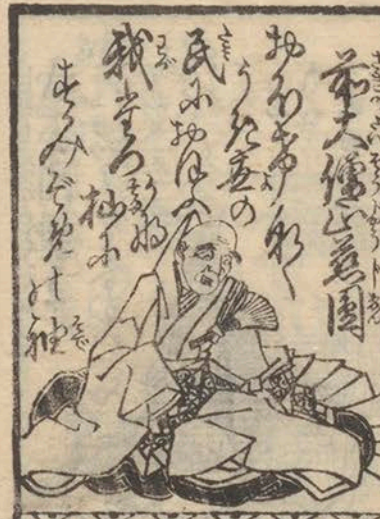 前大僧正慈圓
おほけなく
うき世の
民におほふ
我立
杣に
すみぞめの袖